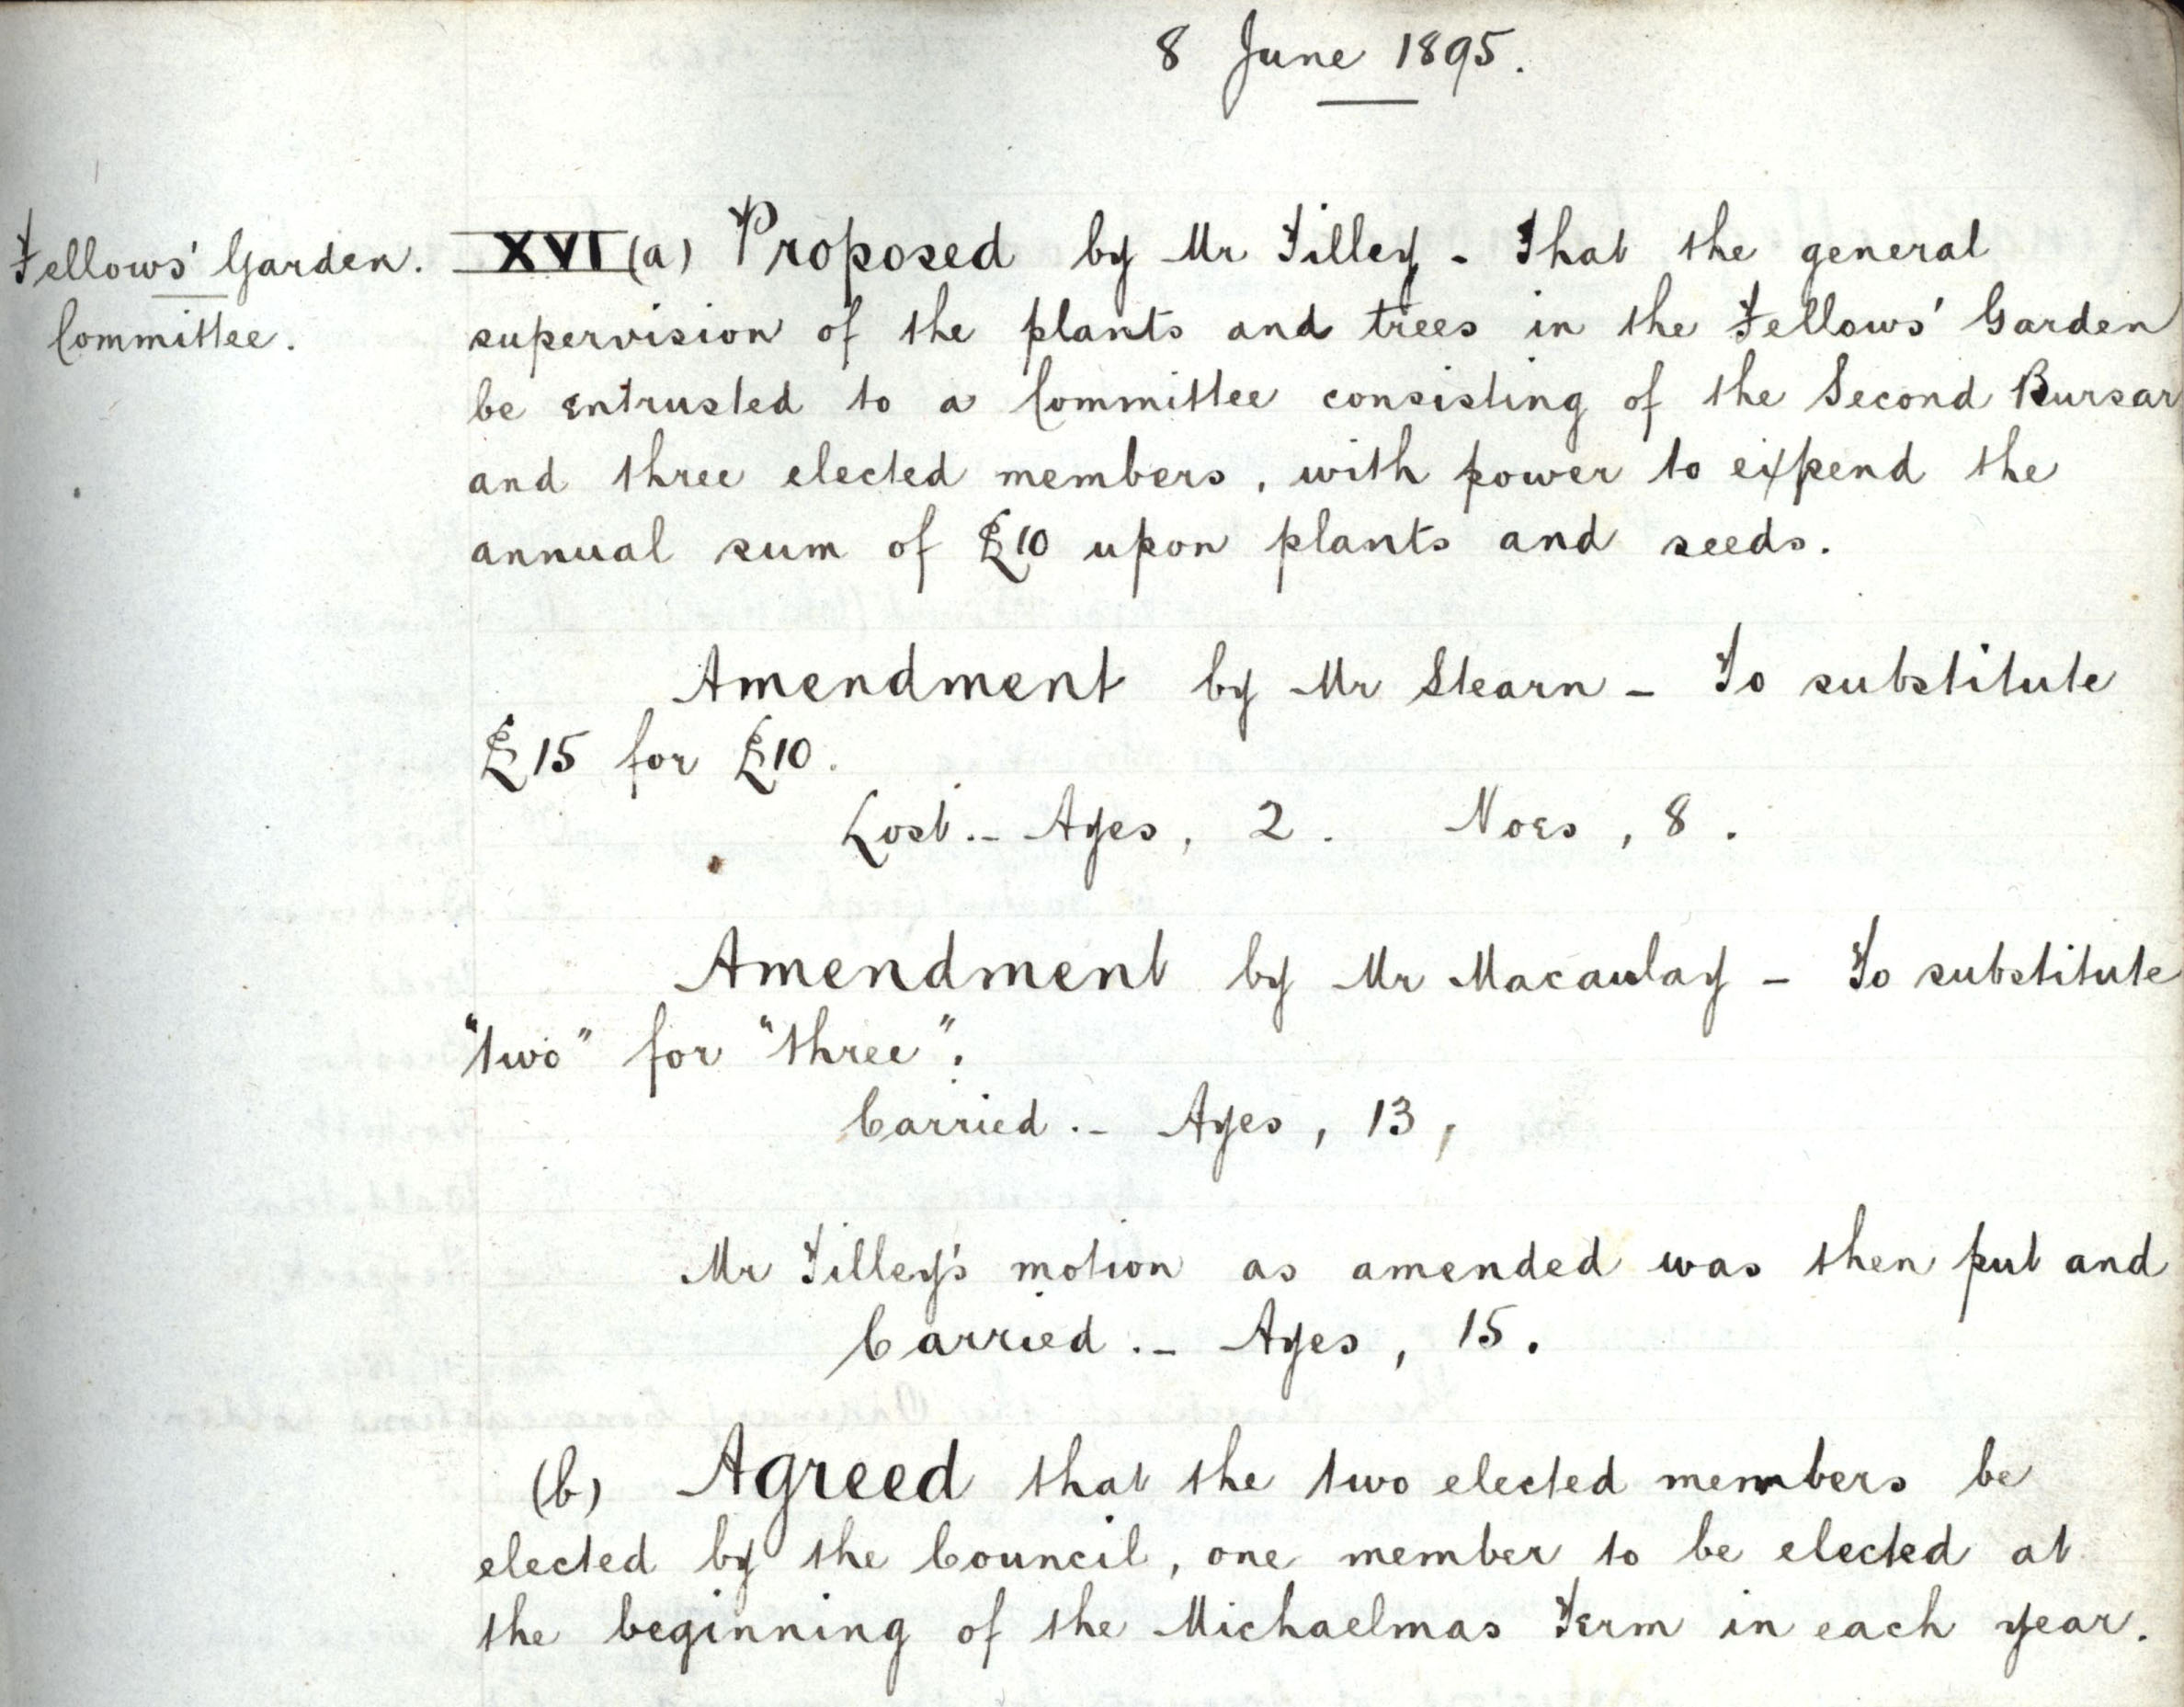 8 June 1895.
Fellows' Garden
Committee.
XVI (a) Proposed by Mr Tilley - That the general
supervision of the plants and trees in the Fellows' Garden
be entrusted to a Committee consisting of the Second Bursar
and three elected members, with power to expend the
annual sum of £10 upon plants and seeds.
Amendment by Mr Stearn - To substitute
£15 for £10.
Lost.- Ayes, 2. Noes, 8.
Amendment by Mr Macaulay - To substitute
"two" for "three".
Carried.- Ayes, 13,
Mr Tilley's motion as amended was then put and
Carried.- Ayes, 15.
(b) Agreed that the two elected members be
elected by the Council, one member to be elected at
the beginning of the Michaelmas Term in each year.